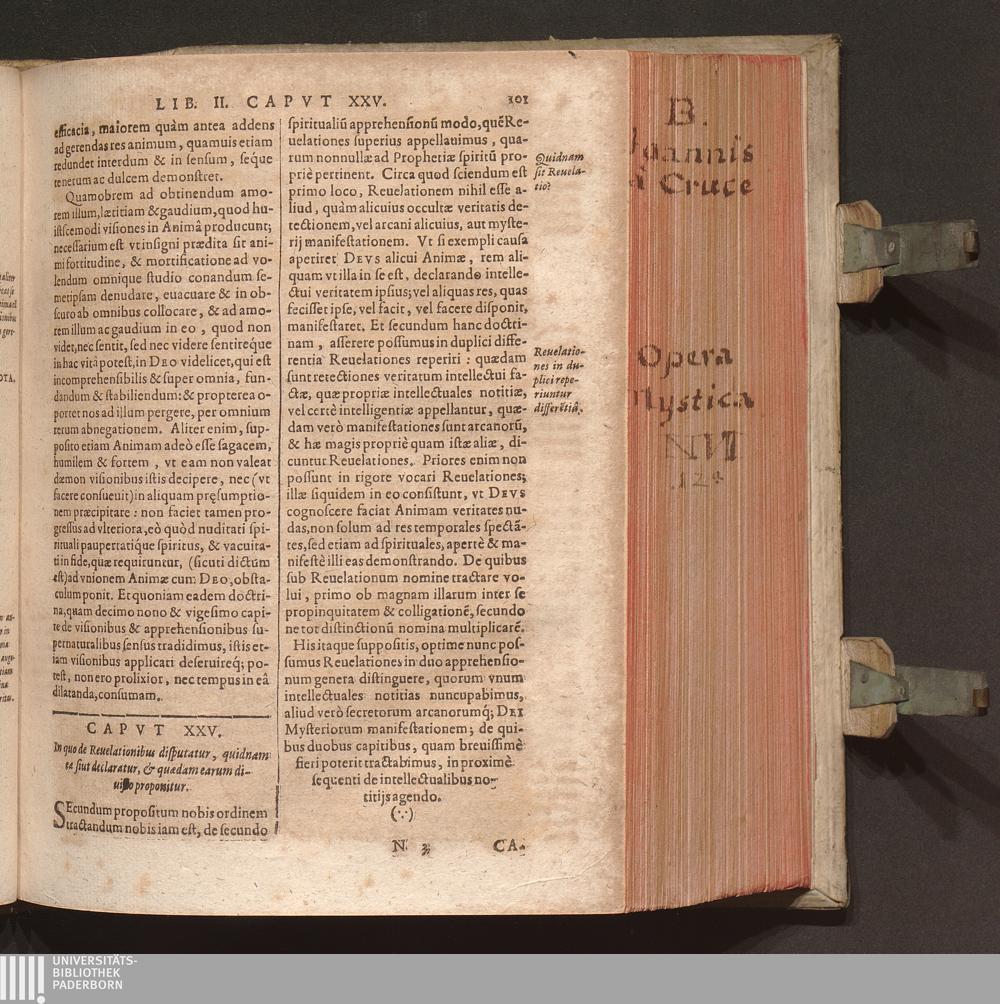 LIB. II. CAPVT XXV. 101
efficacia, maiorem quàm antea addens
ad gerendas res animum, quamuis etiam
redundet interdum & in sensum, seque
tenerum ac dulcem demonstret.
Quamobrem ad obtinendum amo-
rem illum, lætitiam & gaudium, quod hu-
iuscemodi visiones in Animâ producunt;
necessarium est vt insigni prædita sit ani-
mi fortitudine, & mortificatione ad vo-
lendum omnique studio conandum se-
metipsam denudare, euacuare & in ob-
scuro ab omnibus collocare, & ad amo-
rem illum ac gaudium in eo, quod non
videt, nec sentit, sed nec videre sentireque
in hac vitâ potest, in DEO videlicet, qui est
incomprehensibilis & super omnia, fun-
dandum & stabiliendum: & propterea o-
portet nos ad illum pergere, per omnium
rerum abnegationem. Aliter enim, sup-
posito etiam Animam adeò esse sagacem,
humilem & fortem, vt eam non valeat
dæmon visionibus istis decipere, nec (vt
facere consueuit) in aliquam pręsumptio-
nem præcipitare: non faciet tamen pro-
gressus ad vlteriora, eò quòd nuditati spi-
rituali paupertatiq́ue spiritus, & vacuita-
ti in fide, quæ requiruntur, (sicuti dictum
est) ad vnionem Animæ cum DEO, obsta-
culum ponit. Et quoniam eadem doctri-
na, quam decimo nono & vigesimo capi-
te de visionibus & apprehensionibus su-
pernaturalibus sensus tradidimus, istis et-
iam visionibus applicari deseruireq́; po-
test, non ero prolixior, nec tempus in eâ
dilatanda, consumam.
CAPVT XXV.
In quo de Reuelationibus disputatur, quidnam
eæ sint declaratur, & quædam earum di-
uisio proponitur.
SEcundum propositum nobis ordinem
tractandum nobis iam est, de secundo
spiritualiū apprehensionū modo, quē Re-
uelationes superius appellauimus, qua-
rum nonnullæ ad Prophetiæ spiritū pro-
priè pertinent. Circa quod sciendum est
primo loco, Reuelationem nihil esse a-
liud, quàm alicuius occultæ veritatis de-
tectionem, vel arcani alicuius, aut myste-
rij manifestationem. Vt si exempli causa
aperiret DEVS alicui Animæ, rem ali-
quam vt illa in se est, declarando intelle-
ctui veritatem ipsius; vel aliquas res, quas
fecisset ipse, vel facit, vel facere disponit,
manifestaret. Et secundum hanc doctri-
nam, asserere possumus in duplici diffe-
rentia Reuelationes reperiri: quædam
sunt retectiones veritatum intellectui fa-
ctæ, quæ propriæ intellectuales notitiæ,
vel certè intelligentiæ appellantur, quæ-
dam verò manifestationes sunt arcanorū,
& hæ magis propriè quam istæ aliæ, di-
cuntur Reuelationes. Priores enim non
possunt in rigore vocari Reuelationes;
illæ siquidem in eo consistunt, vt DEVS
cognoscere faciat Animam veritates nu-
das, non solum ad res temporales spectā-
tes, sed etiam ad spirituales, apertè & ma-
nifestè illi eas demonstrando. De quibus
sub Reuelationum nomine tractare vo-
lui, primo ob magnam illarum inter se
propinquitatem & colligationē, secundo
ne tot distinctionū nomina multiplicarē.
His itaque suppositis, optime nunc pos-
sumus Reuelationes in duo apprehensio-
num genera distinguere, quorum vnum
intellectuales notitias nuncupabimus,
aliud verò secretorum arcanorumq́; DEI
Mysteriorum manifestationem; de qui-
bus duobus capitibus, quam breuissimè
fieri poterit tractabimus, in proximè
sequenti de intellectualibus no-
titijs agendo.
(∵)
N 3 CA-
Quidnam
sit Reuela-
tio?
Reuelatio-
nes in du-
plici repe-
riuntur
differētiâ.
B.
Joannis
â Cruce
Opera
Mystica
124
UNIVERSITÄTS-
BIBLIOTHEK
PADERBORN